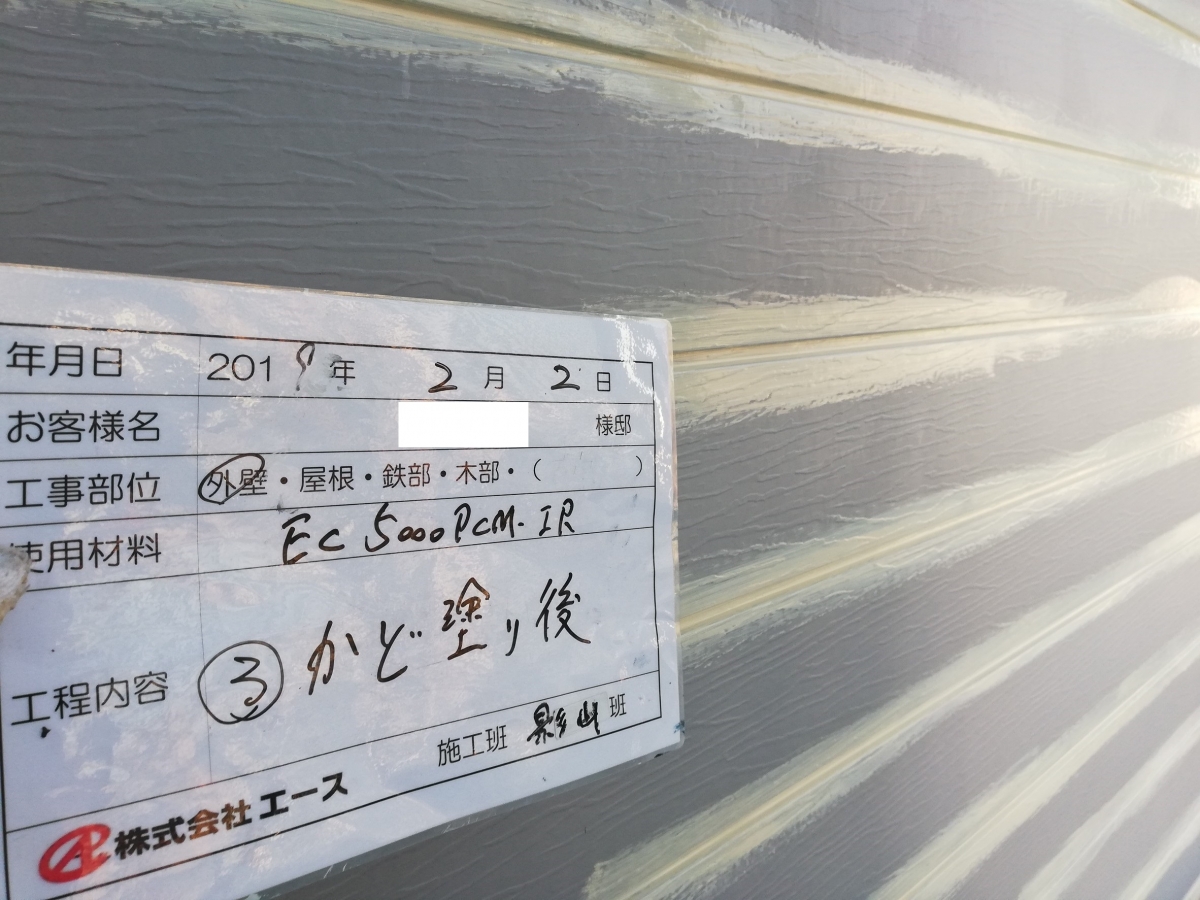 年月日 2019年 2月 2日
お客様名 様邸
工事部位 外壁・屋根・鉄部・木部・( )
使用材料 EC 5000PCM-IR
工程内容 ③ かど塗り後
施工班 影山 班
株式会社エース